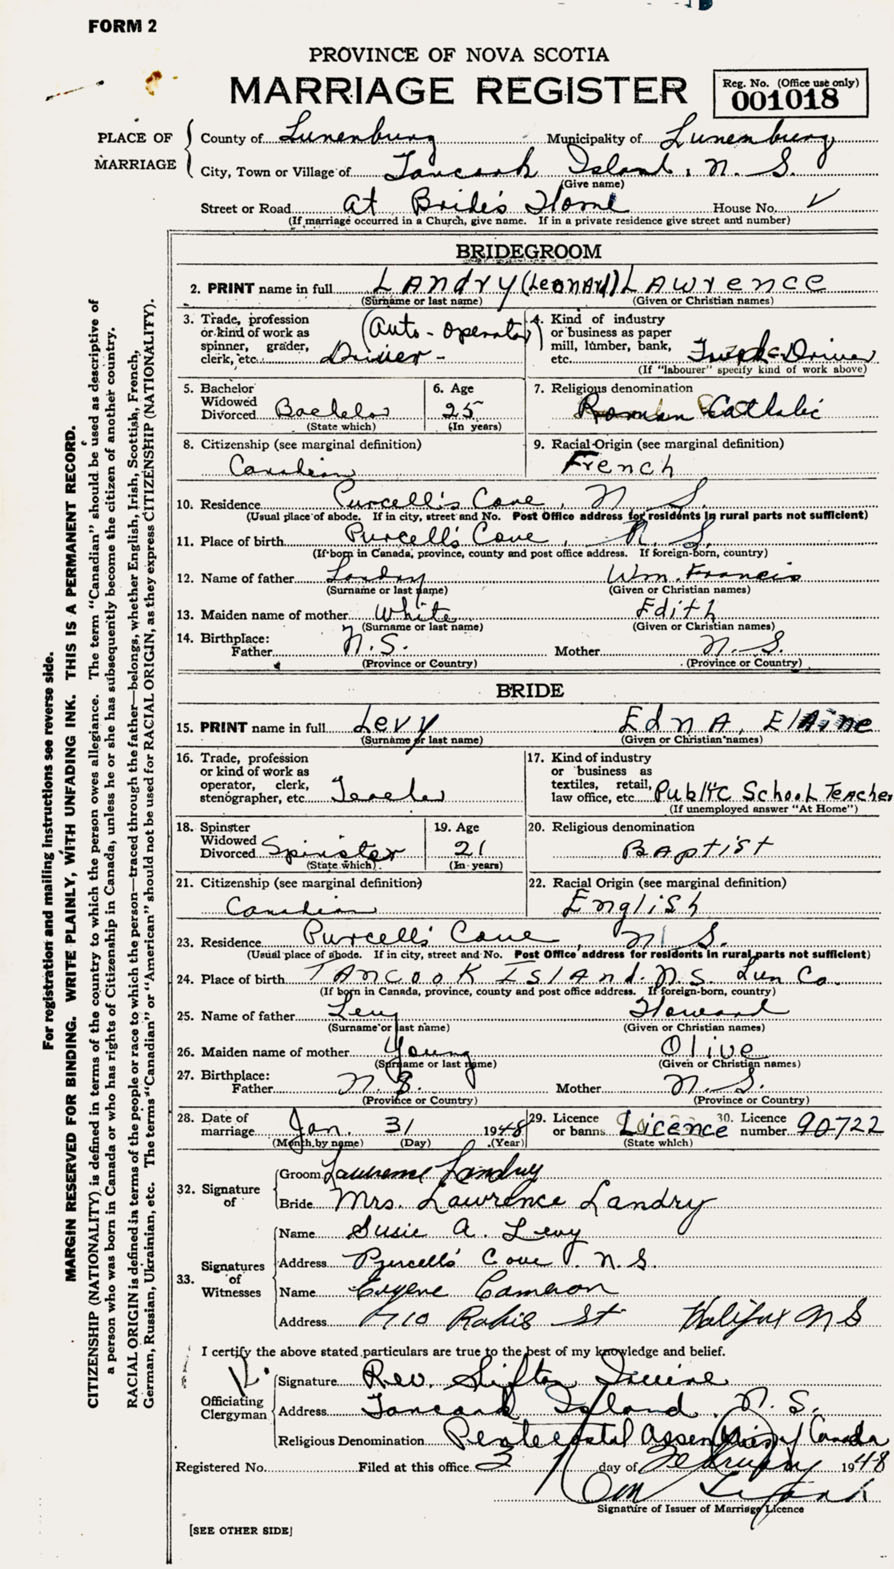 FORM 2
PROVINCE OF NOVA SCOTIA
MARRIAGE REGISTER
Reg. No. (Office use only)
001018
PLACE OF MARRIAGE
County of Lunenburg Municipality of Lunenburg
City, Town or Village of Tancook Island, N. S.
(Give name)
Street or Road at Bride's Home House No.
(If marriage occurred in a Church, give name. If in a private residence give street and number)
BRIDEGROOM
2. PRINT name in full LAndry (Leonard) LAwrence
(Surname or last name) (Given or Christian names)
3. Trade, profession or kind of work as spinner, grader, clerk, etc. (Auto-operator) Driver -
4. Kind of industry or business as paper mill, lumber, bank, etc. Truck-Driver
(If "labourer" specify kind of work above)
5. Bachelor Widowed Divorced Bachelor
(State which)
6. Age 25
(In years)
7. Religious denomination Roman Catholic
8. Citizenship (see marginal definition) Canadian
9. Racial Origin (see marginal definition) French
10. Residence Purcell's Cove, N S.
(Usual place of abode. If in city, street and No. Post Office address for residents in rural parts not sufficient)
11. Place of birth Purcell's Cove, N. S.
(If born in Canada, province, county and post office address. If foreign-born, country)
12. Name of father Landry Wm. Francis
(Surname or last name) (Given or Christian names)
13. Maiden name of mother White Edith
(Surname or last name) (Given or Christian names)
14. Birthplace: Father N.S. Mother N. S.
(Province or Country) (Province or Country)
BRIDE
15. PRINT name in full Levy EdnA, Elaine
(Surname or last name) (Given or Christian names)
16. Trade, profession or kind of work as operator, clerk, stenographer, etc. Teacher
17. Kind of industry or business as textiles, retail, law office, etc. Public School Teacher
(If unemployed answer "At Home")
18. Spinster Widowed Divorced Spinister
(State which)
19. Age 21
(In years)
20. Religious denomination BAptist
21. Citizenship (see marginal definition) Canadian
22. Racial Origin (see marginal definition) English
23. Residence Purcell's Cove, N. S.
(Usual place of abode. If in city, street and No. Post Office address for residents in rural parts not sufficient)
24. Place of birth TANCOOK ISLAnd. N.S. Lun Co.
(If born in Canada, province, county and post office address. If foreign-born, country)
25. Name of father Levy Howard
(Surname or last name) (Given or Christian names)
26. Maiden name of mother Young Olive
(Surname or last name) (Given or Christian names)
27. Birthplace: Father N. S. Mother N. S.
(Province or Country) (Province or Country)
28. Date of marriage Jan. 31 1948
(Month by name) (Day) (Year)
29. Licence or banns Licence
(State which)
30. Licence number 90722
32. Signature of
Groom Lawrence Landry
Bride Mrs. Lawrence Landry
33. Signatures of Witnesses
Name Susie A. Levy
Address Purcells' Cove, N. S.
Name Eugene Cameron
Address St Halifax N S
I certify the above stated particulars are true to the best of my knowledge and belief.
Officiating Clergyman
Signature Rev.
Address Tancook Island, N. S.
Religious Denomination Pentecostal Assemblies of Canada
Registered No. Filed at this office 3 day of February 1948
Signature of Issuer of Marriage Licence
[SEE OTHER SIDE]
For registration and mailing instructions see reverse side.
MARGIN RESERVED FOR BINDING. WRITE PLAINLY, WITH UNFADING INK. THIS IS A PERMANENT RECORD.
CITIZENSHIP (NATIONALITY) is defined in terms of the country to which the person owes allegiance. The term "Canadian" should be used as descriptive of
a person who was born in Canada or who has rights of Citizenship in Canada, unless he or she has subsequently become the citizen of another country.
RACIAL ORIGIN is defined in terms of the people or race to which the person—traced through the father—belongs, whether English, Irish, Scottish, French,
German, Russian, Ukrainian, etc. The terms "Canadian" or "American" should not be used for RACIAL ORIGIN, as they express CITIZENSHIP (NATIONALITY).